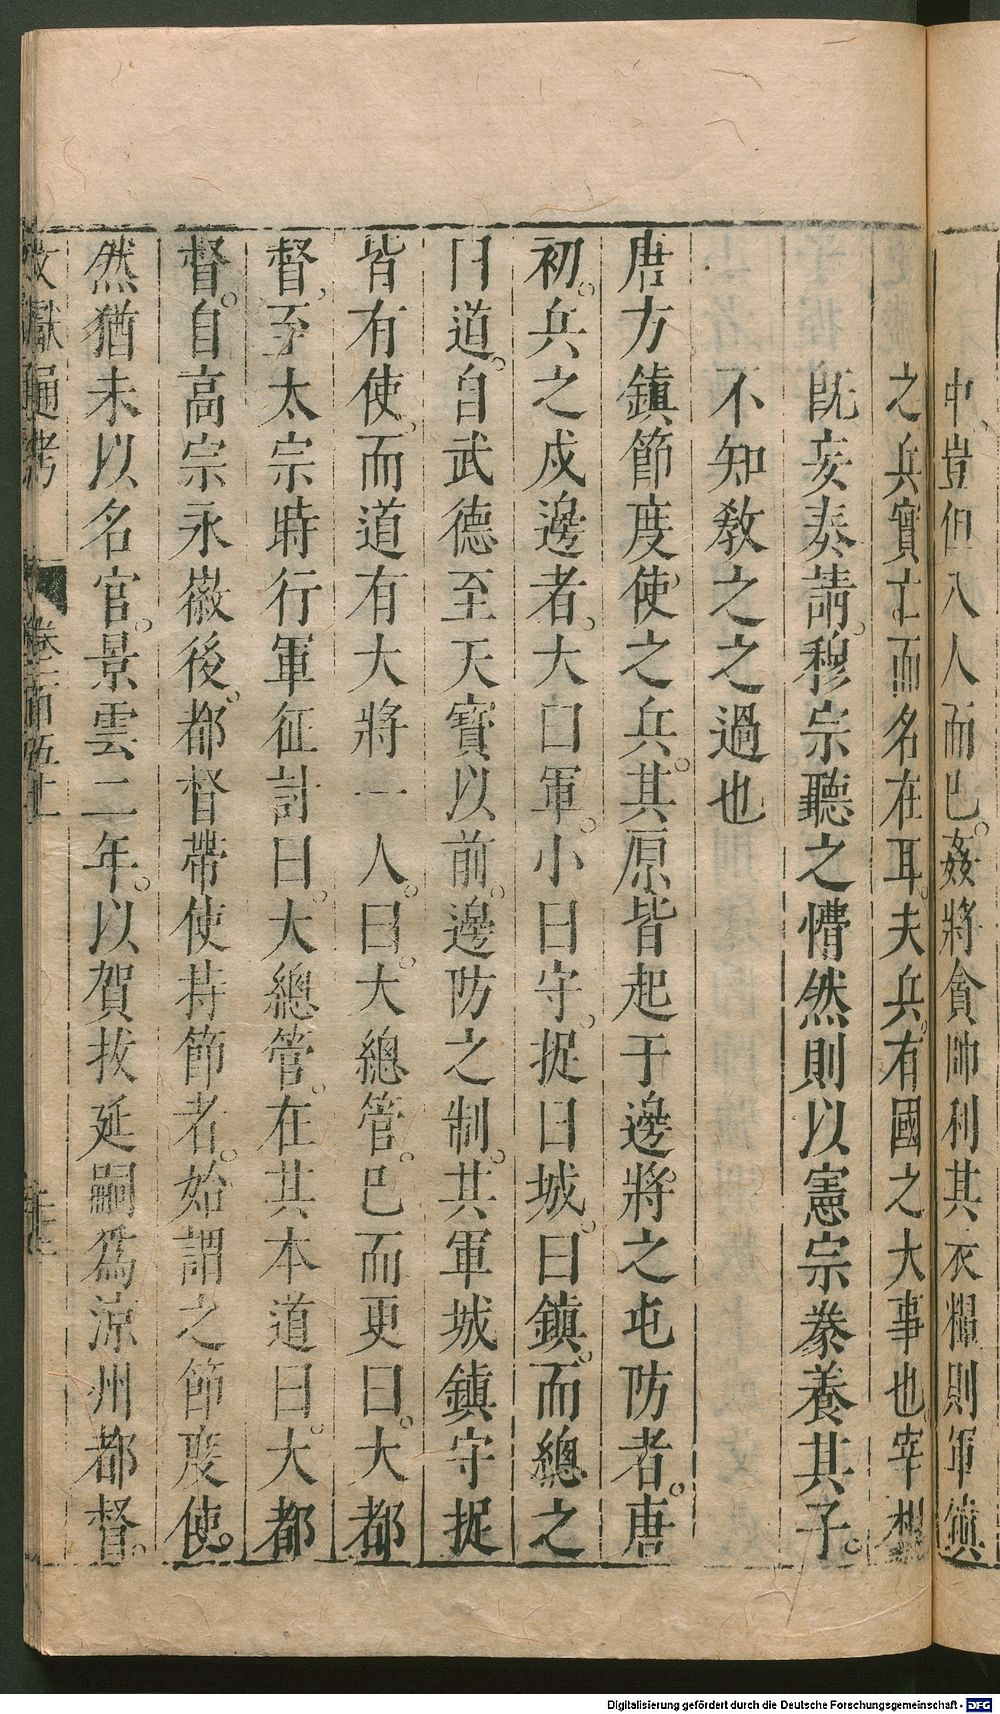 中豈但八人而已姦將貪帥利其衣糧則軍鎮
之兵實亡而名在耳夫兵有國之大事也宰相
旣妄奏請穆宗聽之懵然則以憲宗豢養其子
不知敎之之過也
唐方鎮節度使之兵其原皆起于邊將之屯防者唐
初兵之戍邊者大曰軍小曰守捉曰城曰鎮而總之
曰道自武德至天寶以前邊防之制其軍城鎮守捉
皆有使而道有大將一人曰大總管已而更曰大都
督至太宗時行軍征討曰大總管在其本道曰大都
督自高宗永徽後都督帶使持節者始謂之節度使
然猶未以名官景雲二年以賀拔延嗣爲涼州都督
文獻通考 卷一百五十一
Digitalisierung gefördert durch die Deutsche Forschungsgemeinschaft - DFG